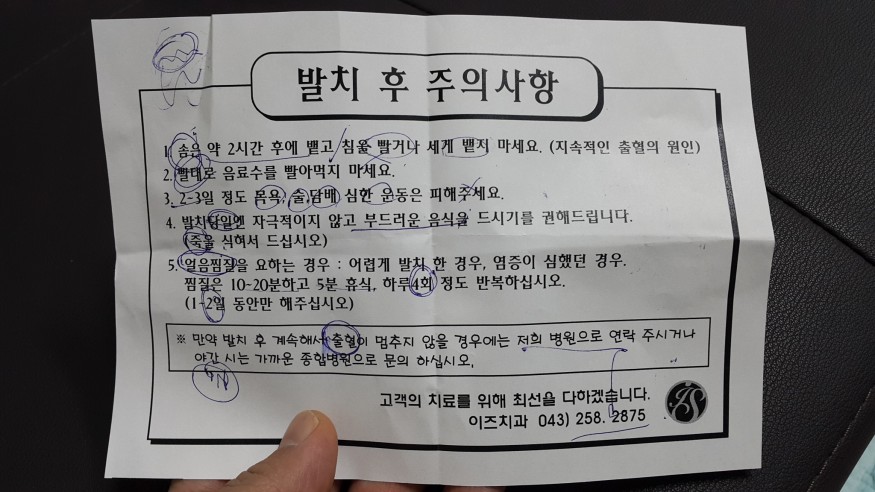 발치 후 주의사항
1. 솜은 약 2시간 후에 뱉고 침을 빨거나 세게 뱉지 마세요. (지속적인 출혈의 원인)
2. 빨대로 음료수를 빨아먹지 마세요.
3. 2-3일 정도 목욕, 술,담배 심한 운동은 피해주세요.
4. 발치당일엔 자극적이지 않고 부드러운 음식을 드시기를 권해드립니다.
(죽을 식혀서 드십시오)
5. 얼음찜질을 요하는 경우 : 어렵게 발치 한 경우, 염증이 심했던 경우.
찜질은 10~20분하고 5분 휴식, 하루4회 정도 반복하십시오.
(1-2일 동안만 해주십시오)
※ 만약 발치 후 계속해서 출혈이 멈추지 않을 경우에는 저희 병원으로 연락 주시거나
야간 시는 가까운 종합병원으로 문의 하십시오.
고객의 치료를 위해 최선을 다하겠습니다.
이즈치과 043) 258. 2875